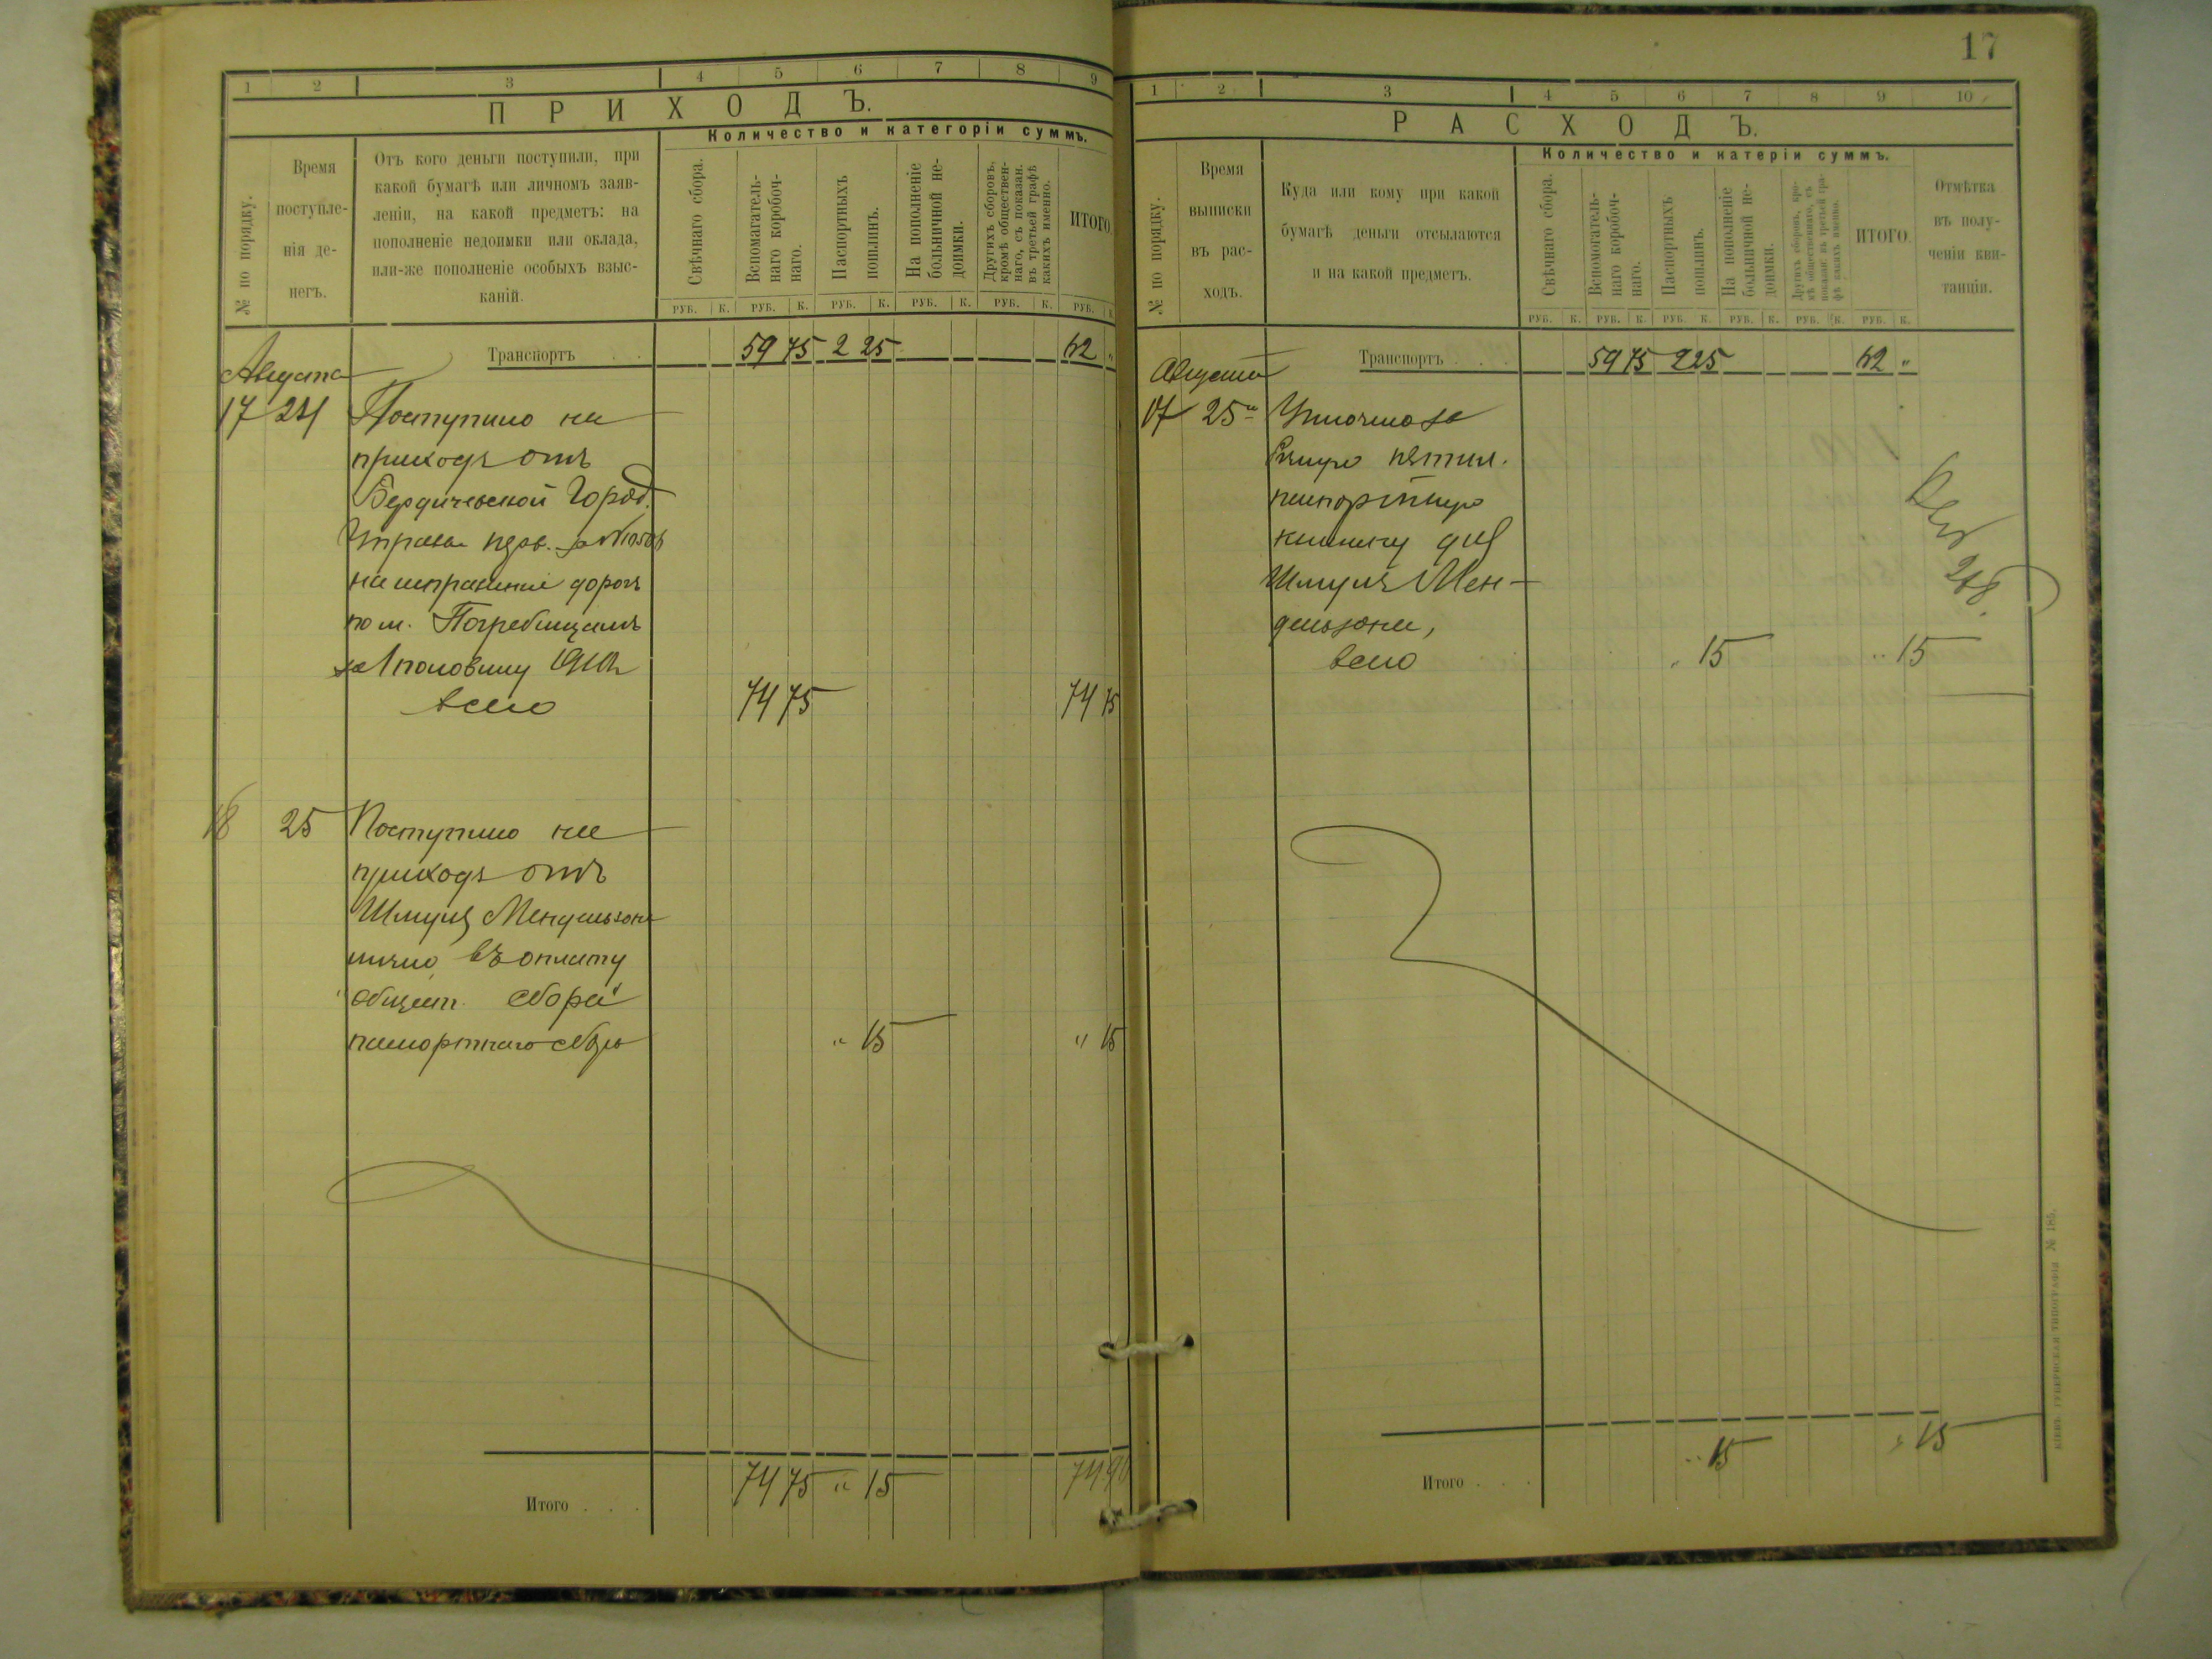 17
1 2 3 4 5 6 7 8 9
ПРИХОДЪ.
Количество и категоріи суммъ.
№ по порядку.
Время
поступле-
нія де-
негъ.
Отъ кого деньги поступили, при
какой бумагѣ или личномъ заяв-
леніи, на какой предметъ: на
пополненіе недоимки или оклада,
или-же пополненіе особыхъ взыс-
каній.
Свѣчнаго сбора.
Вспомагатель-
наго коробоч-
наго.
Паспортныхъ
пошлинъ.
На пополненіе
больничной не-
доимки.
Другихъ сборовъ,
кромѣ обществен-
наго, съ показан.
въ третьей графѣ
какихъ именно.
ИТОГО.
РУБ. К. РУБ. К. РУБ. К. РУБ. К. РУБ. К. РУБ. К.
Транспортъ . . 59 75 2 25 62 "
Августа
17 24 Поступило на
приходъ отъ
Бердичевской Город.
Управы за №
на исправленіе дорогъ
по м. Погребищамъ
за 1 половину
всего 74 75 74 75
18 25 Поступило на
приходъ отъ
Шмуля Мендельзона
лично въ оплату
общест. сбора
паспортнаго сбора " 15 " 15
Итого . . . 74 75 " 15 74 90
1 2 3 4 5 6 7 8 9 10
РАСХОДЪ.
Количество и катеріи суммъ.
№ по порядку.
Время
выписки
въ рас-
ходъ.
Куда или кому при какой
бумагѣ деньги отсылаются
и на какой предметъ.
Свѣчнаго сбора.
Вспомогатель-
наго коробоч-
наго.
Паспортныхъ
пошлинъ.
На пополненіе
больничной не-
доимки.
Другихъ сборовъ, кро-
мѣ общественнаго, съ
показан. въ третьей гра-
фѣ какихъ именно.
ИТОГО.
Отмѣтка
въ полу-
ченіи кви-
танціи.
РУБ. К. РУБ. К. РУБ. К. РУБ. К. РУБ. К. РУБ. К.
Транспортъ . . . 59 75 2 25 62 "
Августа
17 25 Уплочено за
пятил.
паспортную
книжку для
Шмуля Мен-
дельзона,
всего " 15 " 15
Итого . . . " 15 " 15
КІЕВЪ. ГУБЕРНСКАЯ ТИПОГРАФІЯ № 185.